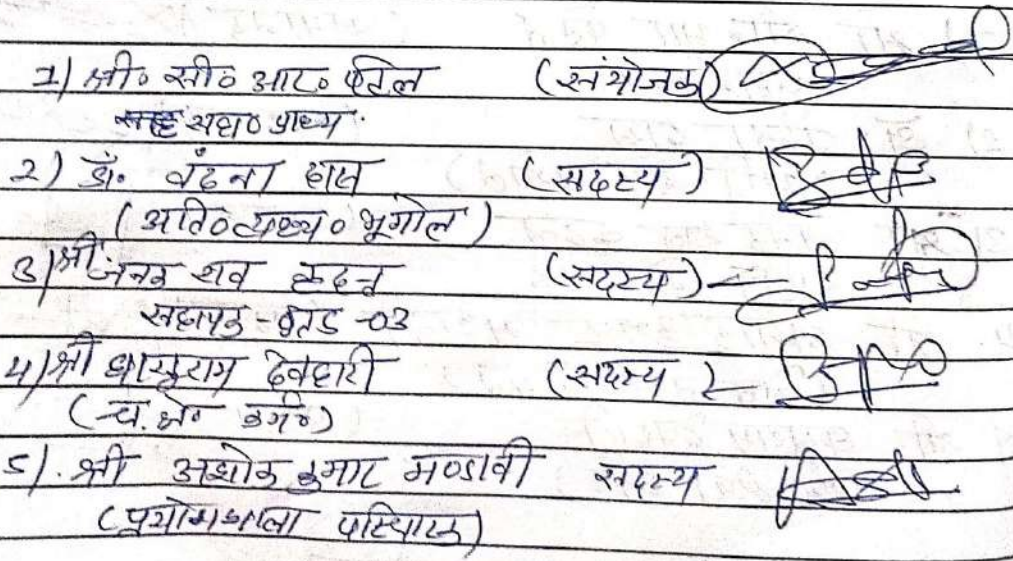 1) श्री० सी० आर० पटेल (संयोजक)
सहा० प्राध्य.
2) डॉ. वंदना दास (सदस्य)
(अति० व्याख्या० भूगोल)
3) श्री जनक राव कदन (सदस्य)
सहायक-ग्रेड-03
4) श्री घासुराम देवहारी (सदस्य)
(च. श्रे० कर्म०)
5). श्री अशोक कुमार मण्डावी सदस्य
(प्रयोगशाला परिचारक)